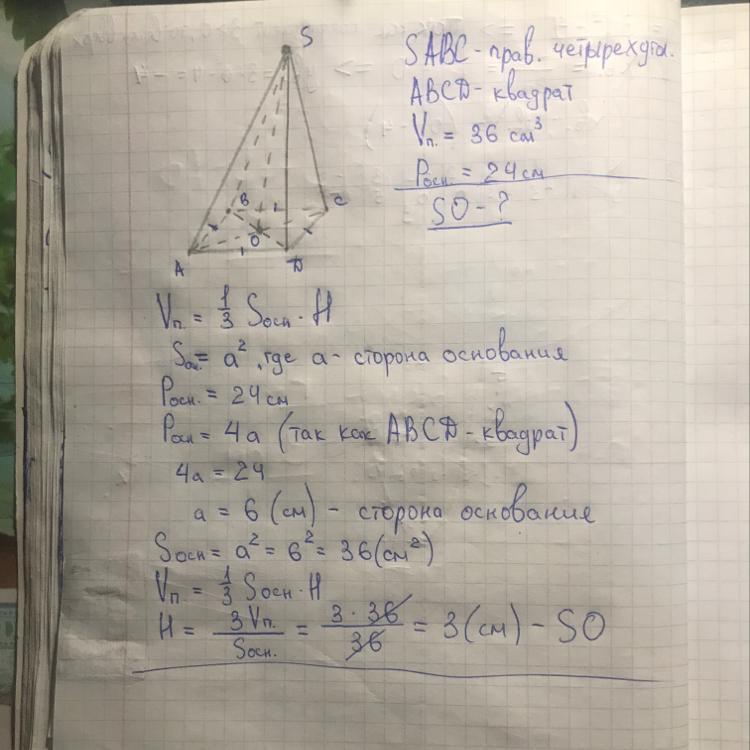 S
B
C
O
A
D
SABC - прав. четырехуг.
ABCD - квадрат
Vп. = 36 см³
Pосн. = 24 см
SO - ?
Vп = 1/3 Sосн · H
Sос. = a², где a - сторона основания
Pосн. = 24 см
Pосн = 4a (так как ABCD - квадрат)
4a = 24
a = 6 (см) - сторона основания
Sосн = a² = 6² = 36 (см²)
Vп = 1/3 Sосн · H
H = 3Vп. / Sосн. = 3 · 36 / 36 = 3 (см) - SO